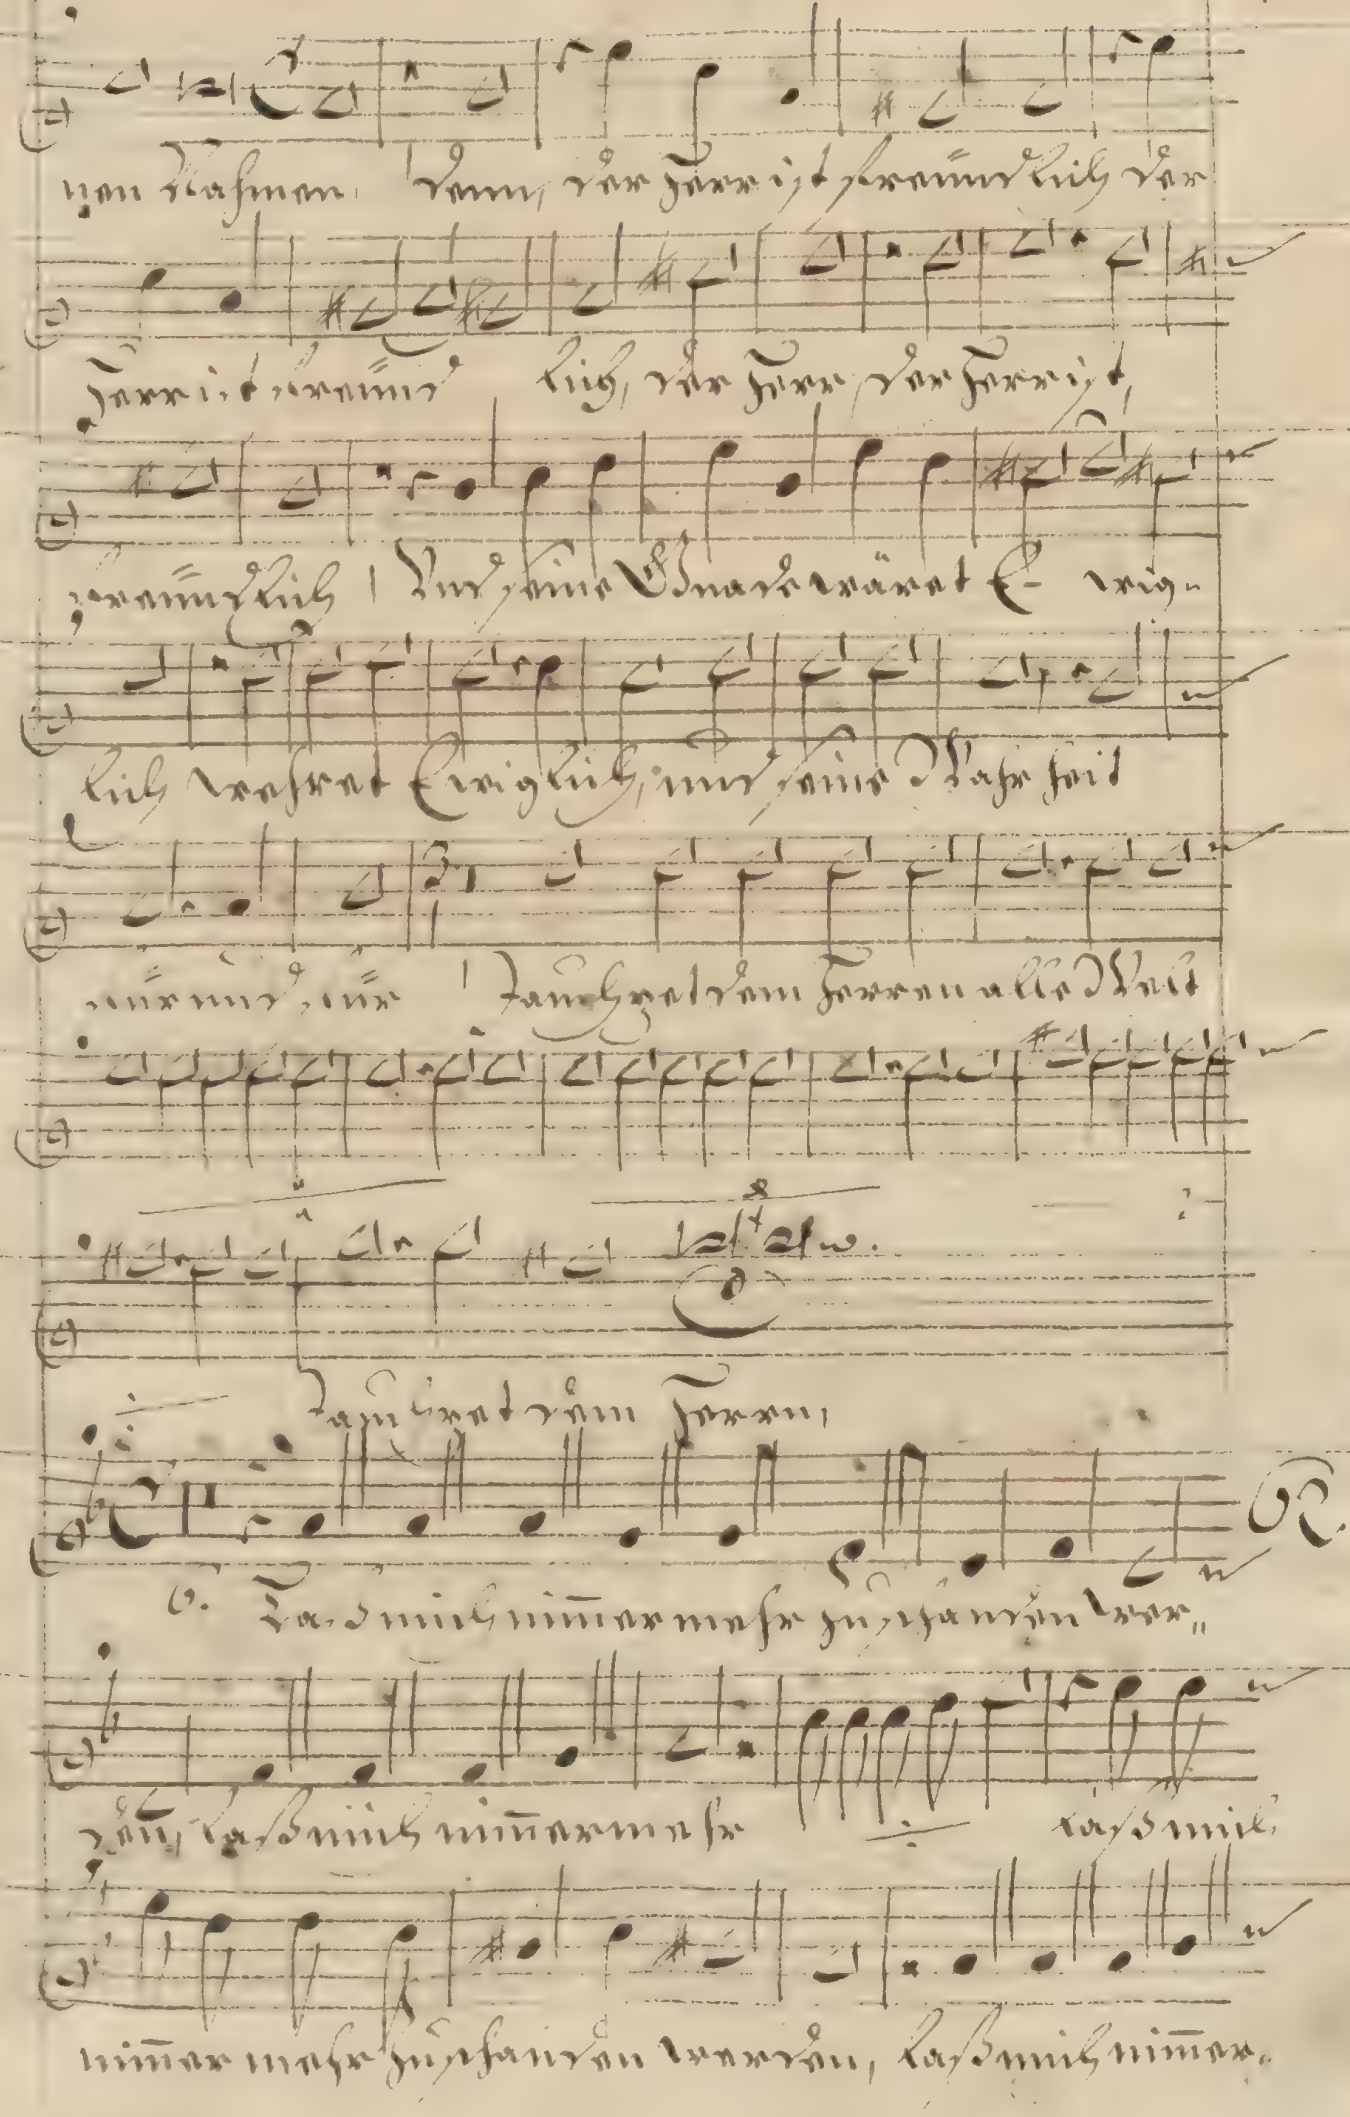 nen Nahmen, denn, der Herr ist freündlich der
Herr ist freünd lich, der Herr, der Herr ist,
freündlich, Und seine Gnade wäret E- wig-
lich wehret Ewiglich, und seine Wahrheit
für und für Jauchzet dem Herren alle Welt
Jauchzet dem Herrn,
6. Laß mich nim̅er mehr zu schanden wer-
den, laß mich nim̅er mehr laß mich
nim̅er mehr zu schanden werden, laß mich nim̅er-